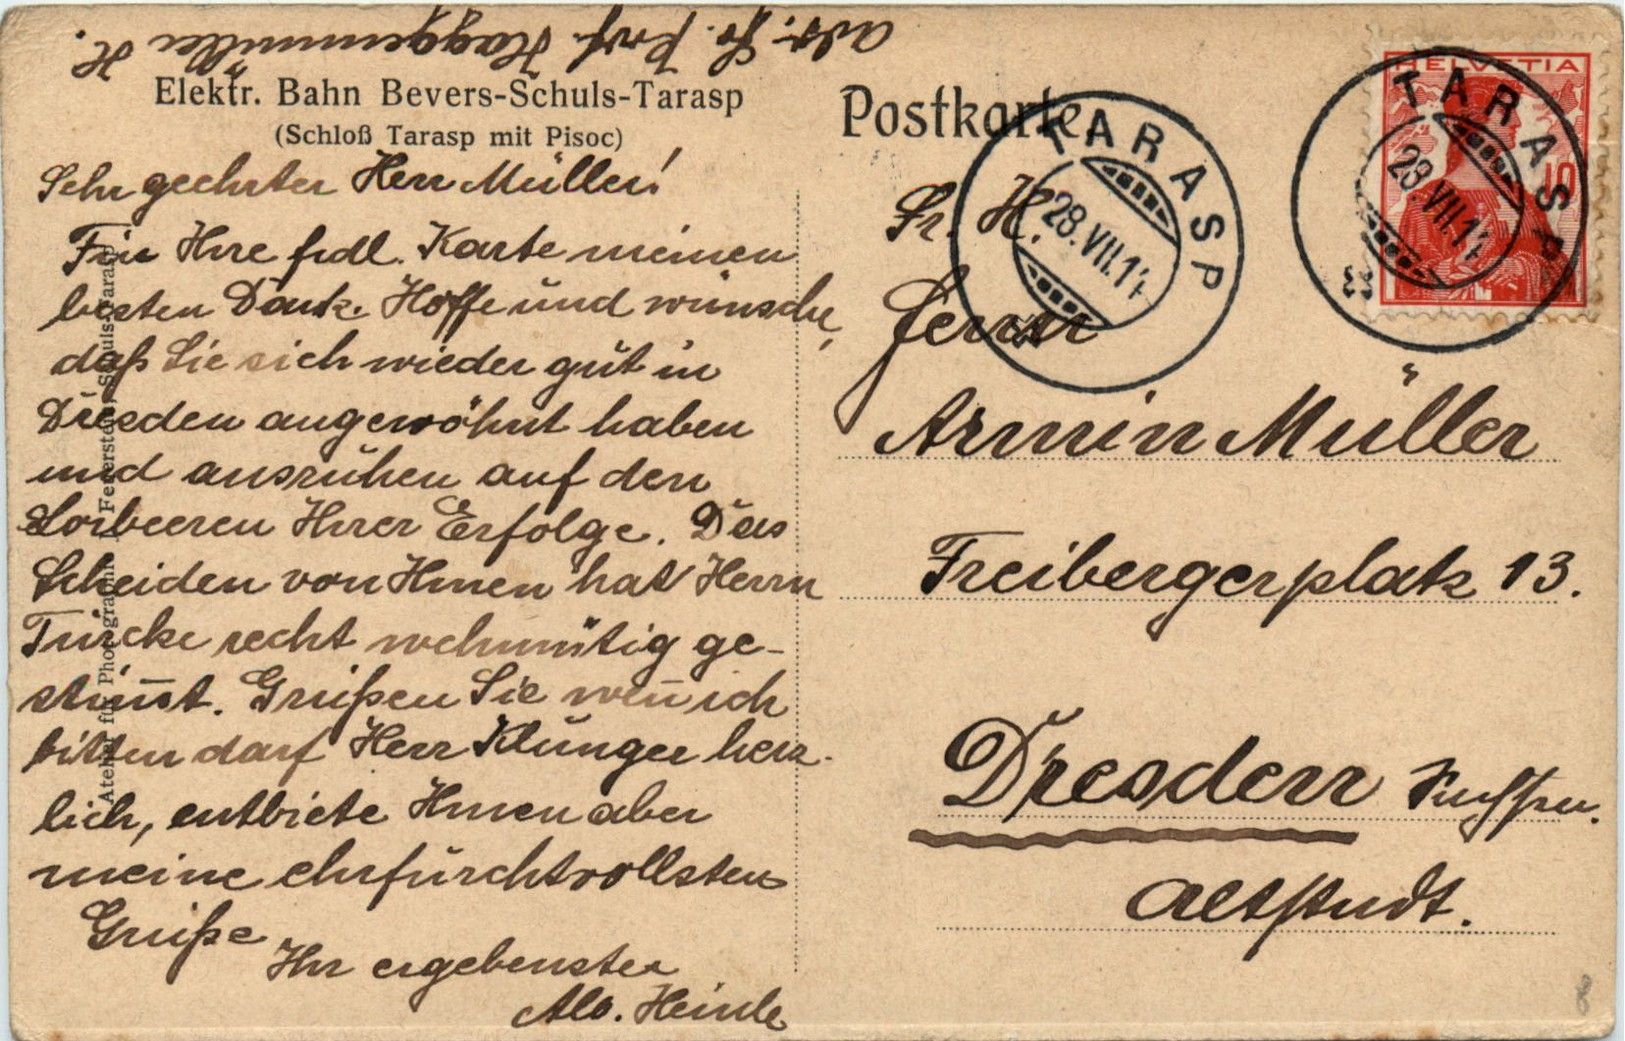 adr. Fr. Prof. Haggenmüller H.
Elektr. Bahn Bevers-Schuls-Tarasp
(Schloß Tarasp mit Pisoc)
Sehr geehrter Herr Müller!
Für Ihre frdl. Karte meinen
besten Dank. Hoffe und wünsche,
daß Sie sich wieder gut in
Dresden angewöhnt haben
und ausruhen auf den
Lorbeeren Ihrer Erfolge. Das
Scheiden von Ihnen hat Herrn
Turcke recht wehmütig ge-
stim̅t. Grüßen Sie wen̅ ich
bitten darf Herr Klunger herz-
lich, entbiete Ihnen aber
meine ehrfurchtvollsten
Grüße
Ihr ergebenster
Alb. Heinle
Atelier für Photographie Feuerstein, Schuls-Tarasp
Postkarte
Sr. H.
Herrn
Armin Müller
Freibergerplatz 13.
Dresden Sachsen.
Altstadt.
HELVETIA
10
TARASP
28.VII.11
TARASP
28.VII.11